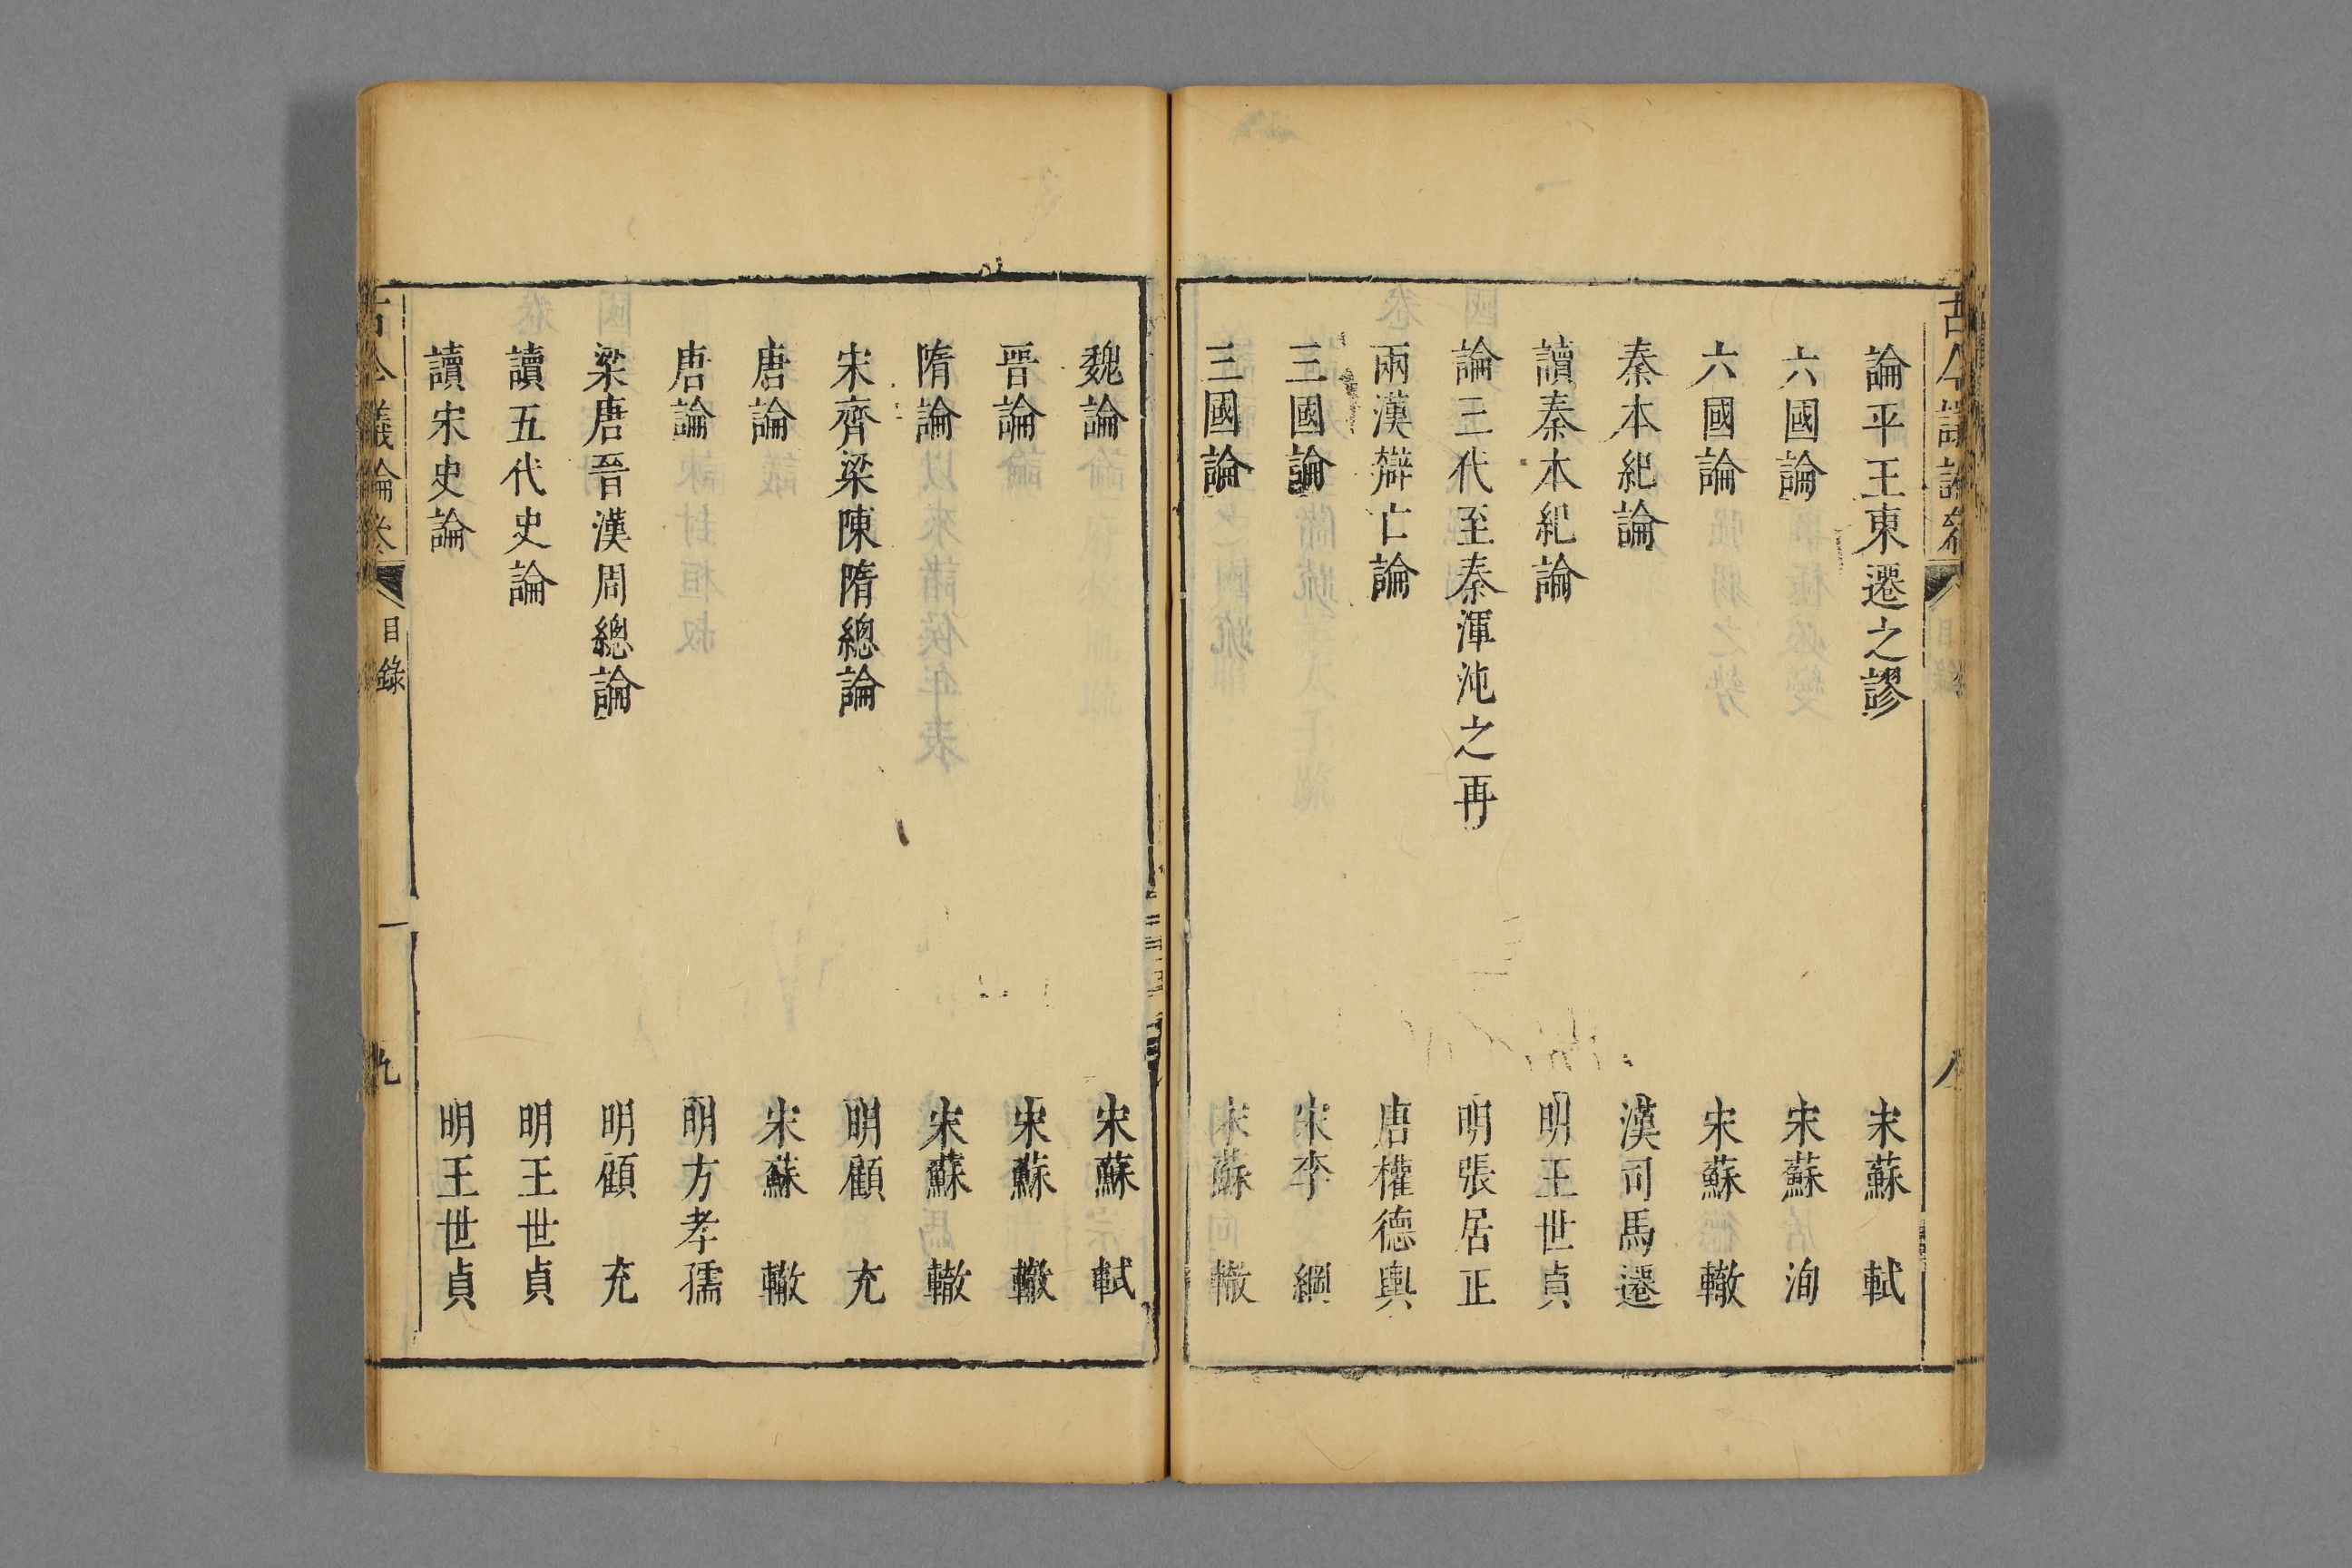 論平王東遷之謬 宋蘇 軾
六國論 宋蘇 洵
六國論 宋蘇 轍
秦本紀論 漢司馬遷
讀秦本紀論 明王世貞
論三代至秦渾沌之再 明張居正
兩漢辯亡論 唐權德輿
三國論 宋李 綱
三國論 宋蘇 轍
魏論 宋蘇 軾
晋論 宋蘇 轍
隋論 宋蘇 轍
宋齊梁陳隋總論 明顧 充
唐論 宋蘇 轍
唐論 明方孝孺
梁唐晋漢周總論 明顧 充
讀五代史論 明王世貞
讀宋史論 明王世貞
目錄
九